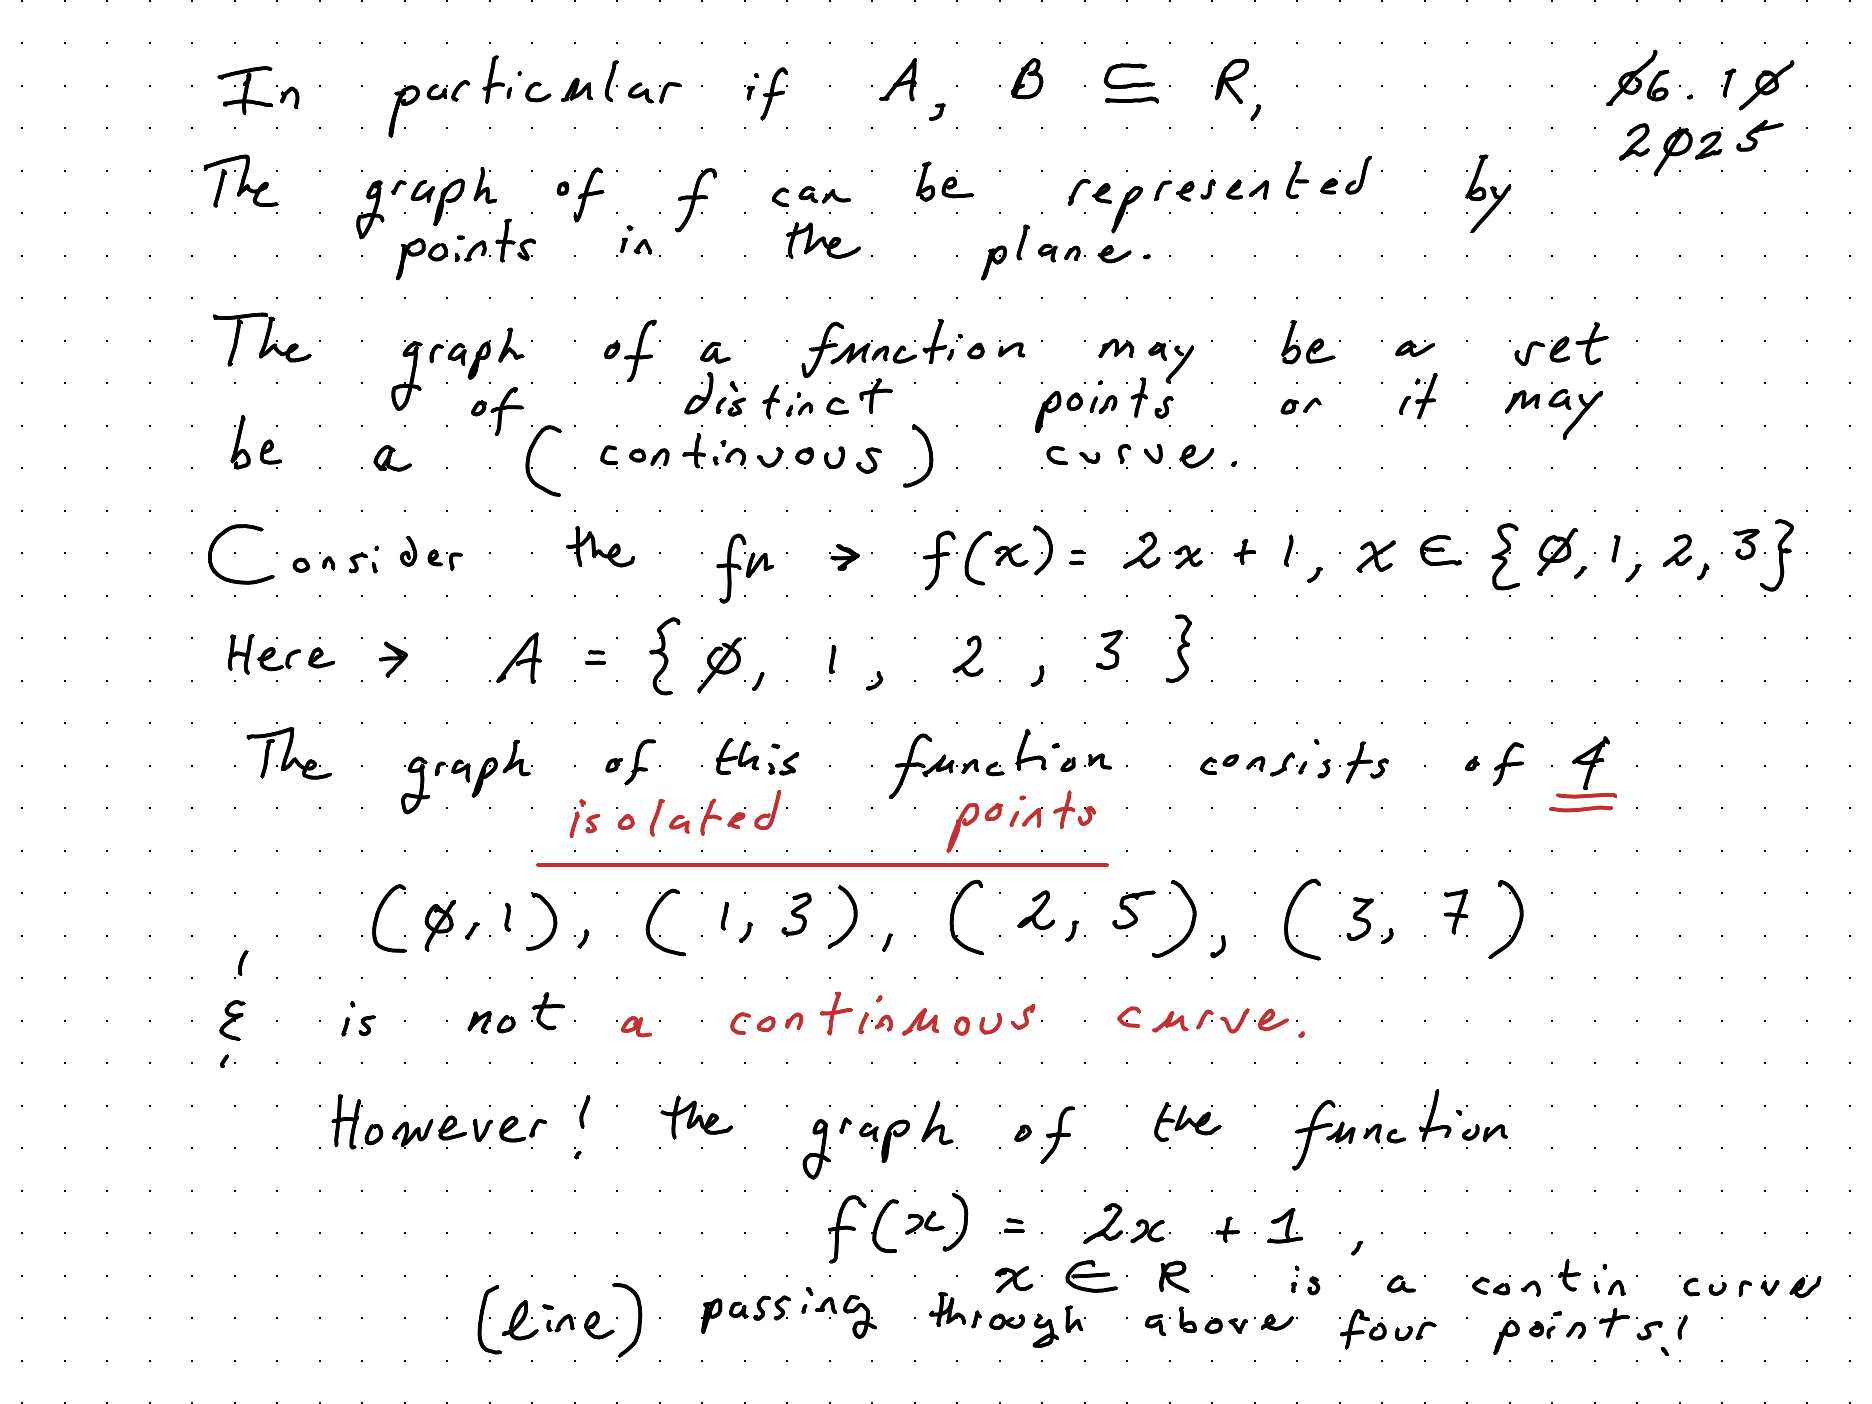 In particular if A, B ⊆ R,
Ø6.1Ø
2Ø25
The graph of f can be represented by
points in the plane.
The graph of a function may be a set
of distinct points or it may
be a (continuous) curve.
Consider the fn → f(x) = 2x + 1, x ∈ {Ø, 1, 2, 3}
Here → A = {Ø, 1, 2, 3}
The graph of this function consists of 4
isolated points
(Ø, 1), (1, 3), (2, 5), (3, 7)
& is not a continuous curve.
However! the graph of the function
f(x) = 2x + 1,
x ∈ R is a contin curve
(line) passing through above four points!